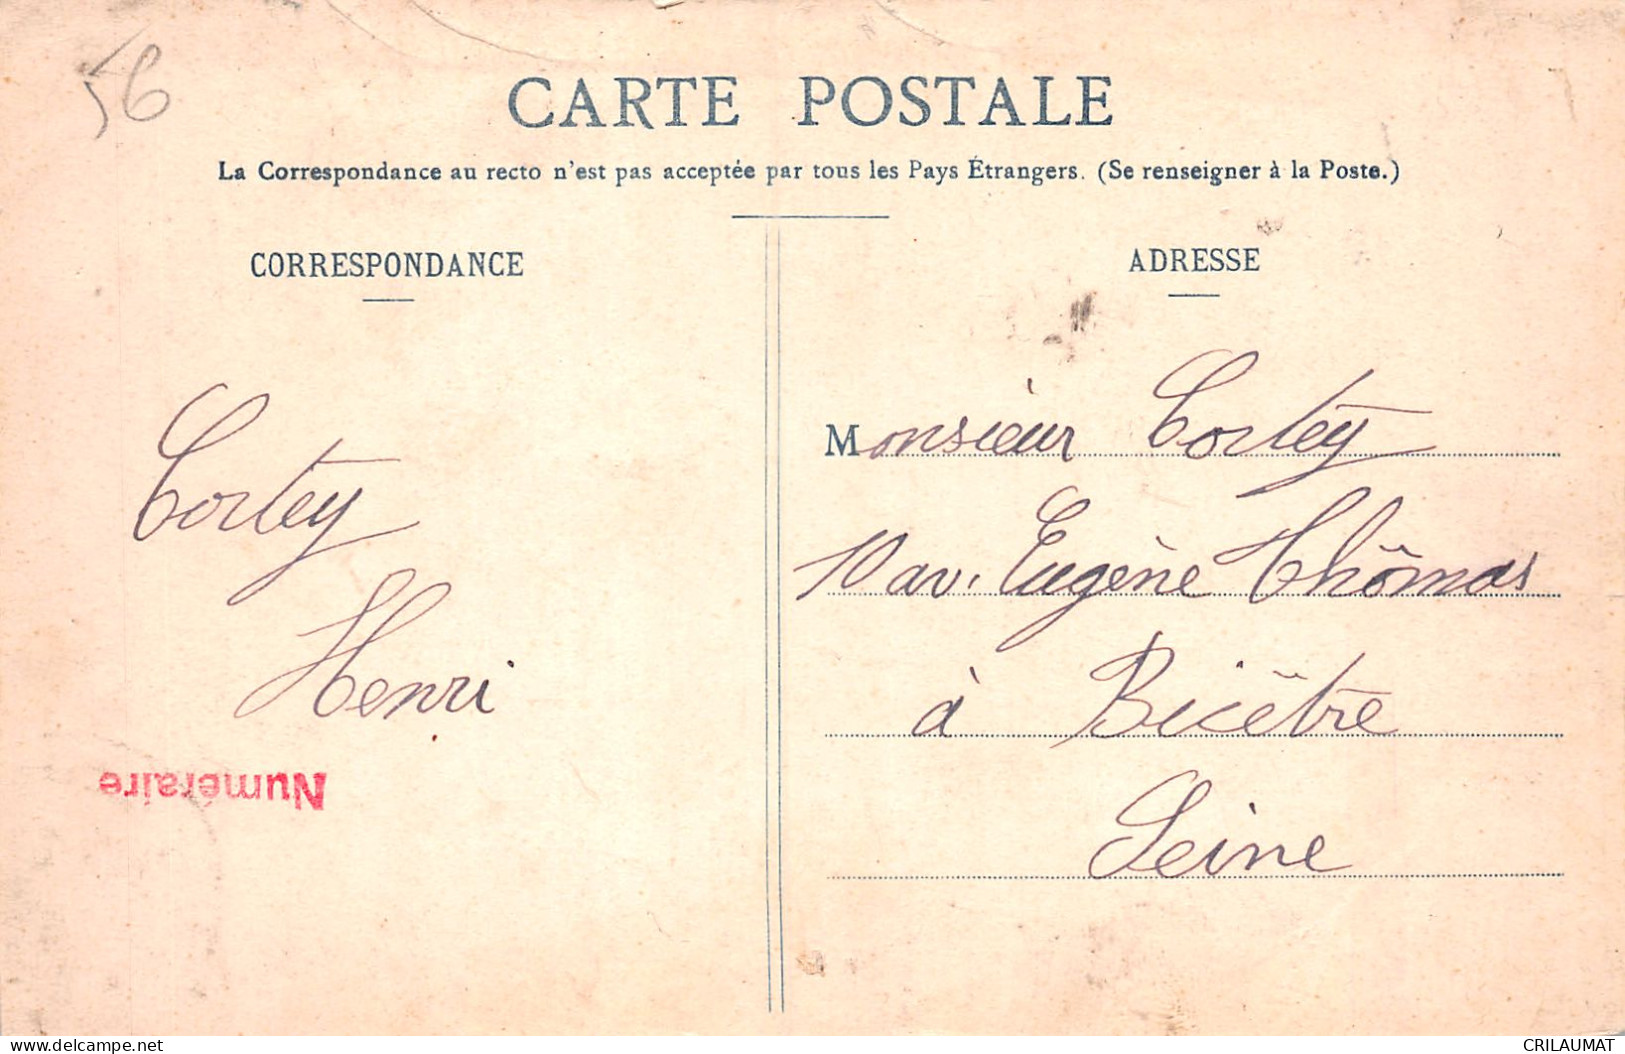 56
CARTE POSTALE
La Correspondance au recto n'est pas acceptée par tous les Pays Étrangers. (Se renseigner à la Poste.)
CORRESPONDANCE
Tortey
Henri
Numéraire
ADRESSE
Monsieur Tortey
10 av. Eugène Thômas
à Bicêtre
Seine
www.delcampe.net
CRILAUMAT